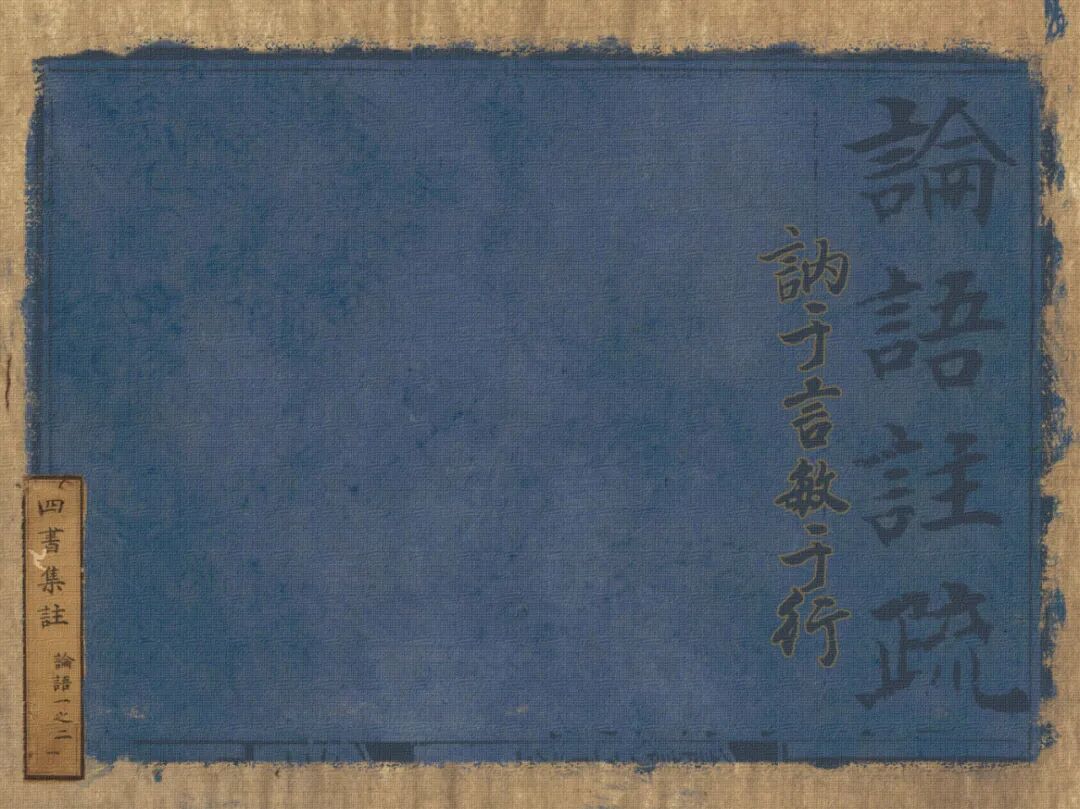 論語註疏
訥于言敏于行
四書集註
論語一之二
一